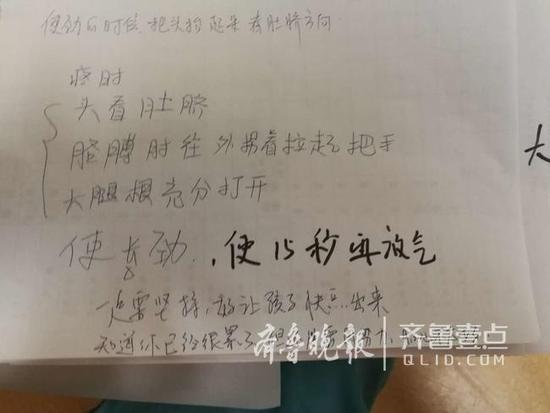 使劲的时候，把头抬起来看肚脐方向.
疼时
头看肚脐
胳膊肘往外拐着拉起把手
大腿根充分打开
使长劲.，使15秒再放气
一定要坚持，好让孩子快点出来
知道你已经很累了
大
齐鲁晚报
齐鲁壹点
QLID.COM